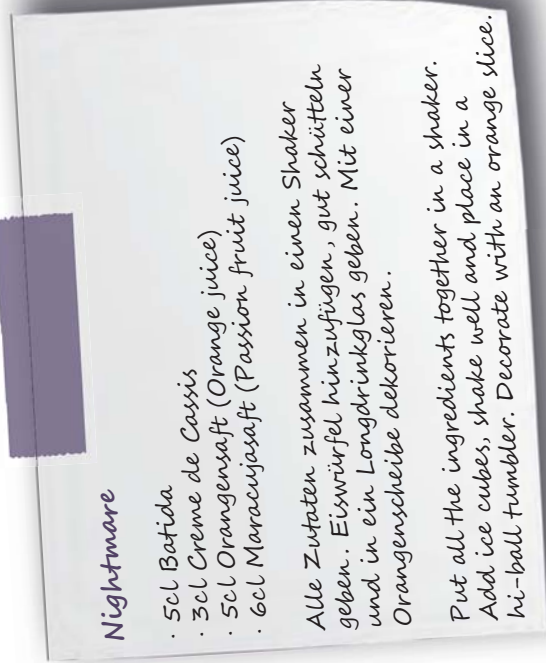 Nightmare
· 5cl Batida
· 3cl Creme de Cassis
· 5cl Orangensaft (Orange juice)
· 6cl Maracujasaft (Passion fruit juice)
Alle Zutaten zusammen in einen Shaker
geben. Eiswürfel hinzufügen, gut schütteln
und in ein Longdrinkglas geben. Mit einer
Orangenscheibe dekorieren.
Put all the ingredients together in a shaker.
Add ice cubes, shake well and place in a
hi-ball tumbler. Decorate with an orange slice.